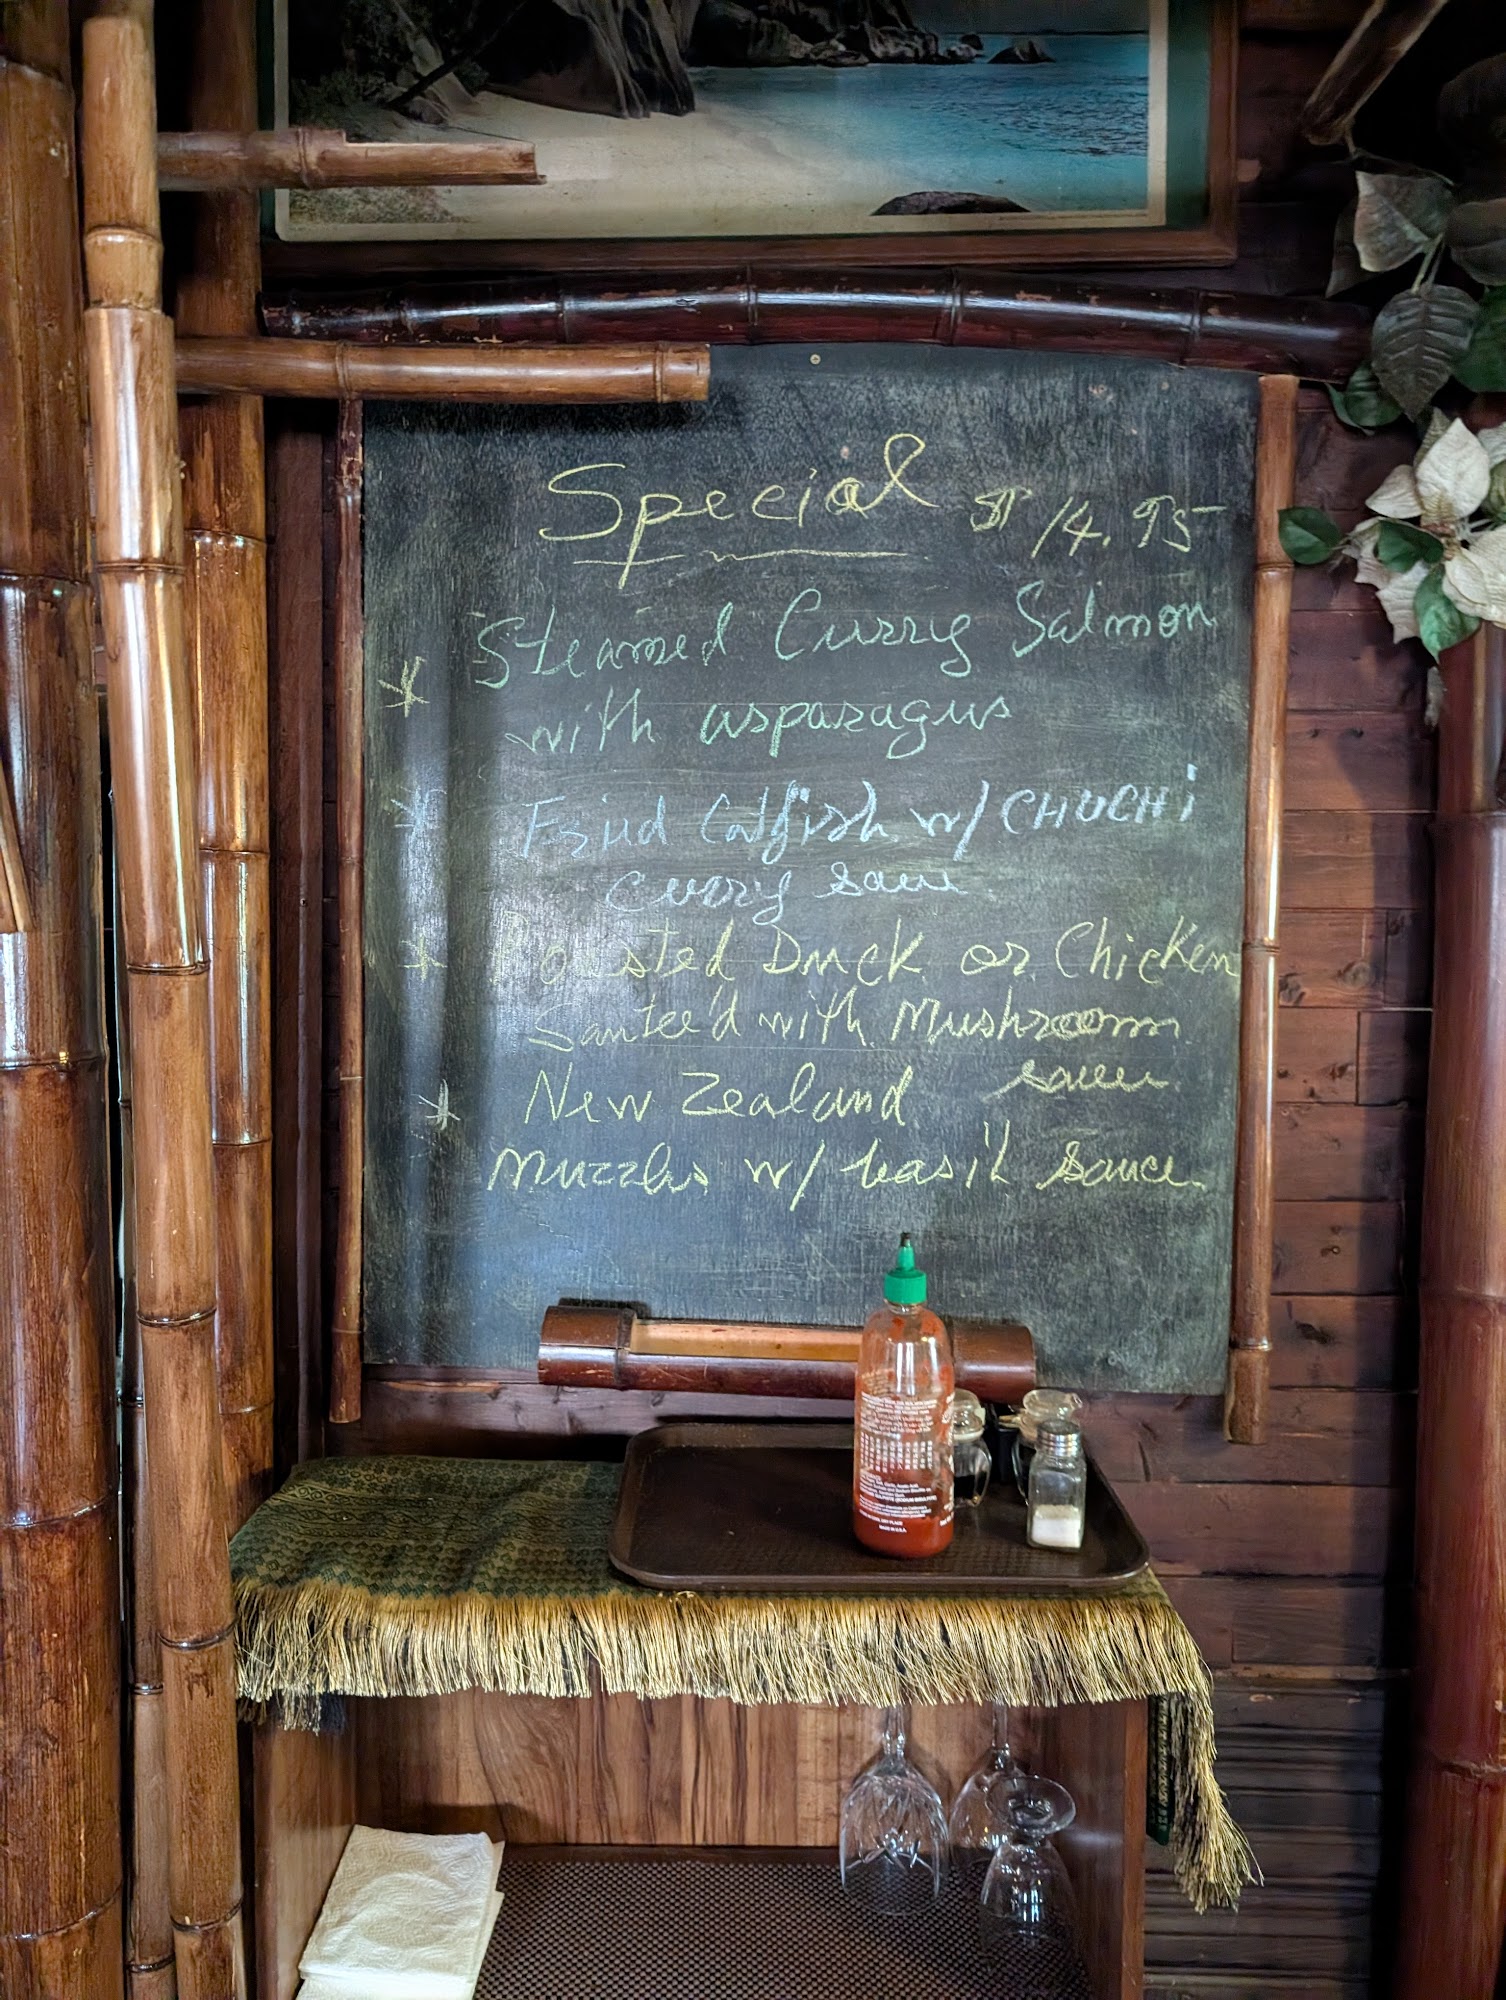 Special $ 14.95
* Steamed Curry Salmon
with asparagus
* Fried Catfish w/ CHUCHi
Curry sauce
* Roasted Duck or Chicken
Sautee'd with Mushroom
sauce
* New Zealand
Muzzles w/ basil sauce.
MADE IN U.S.A.